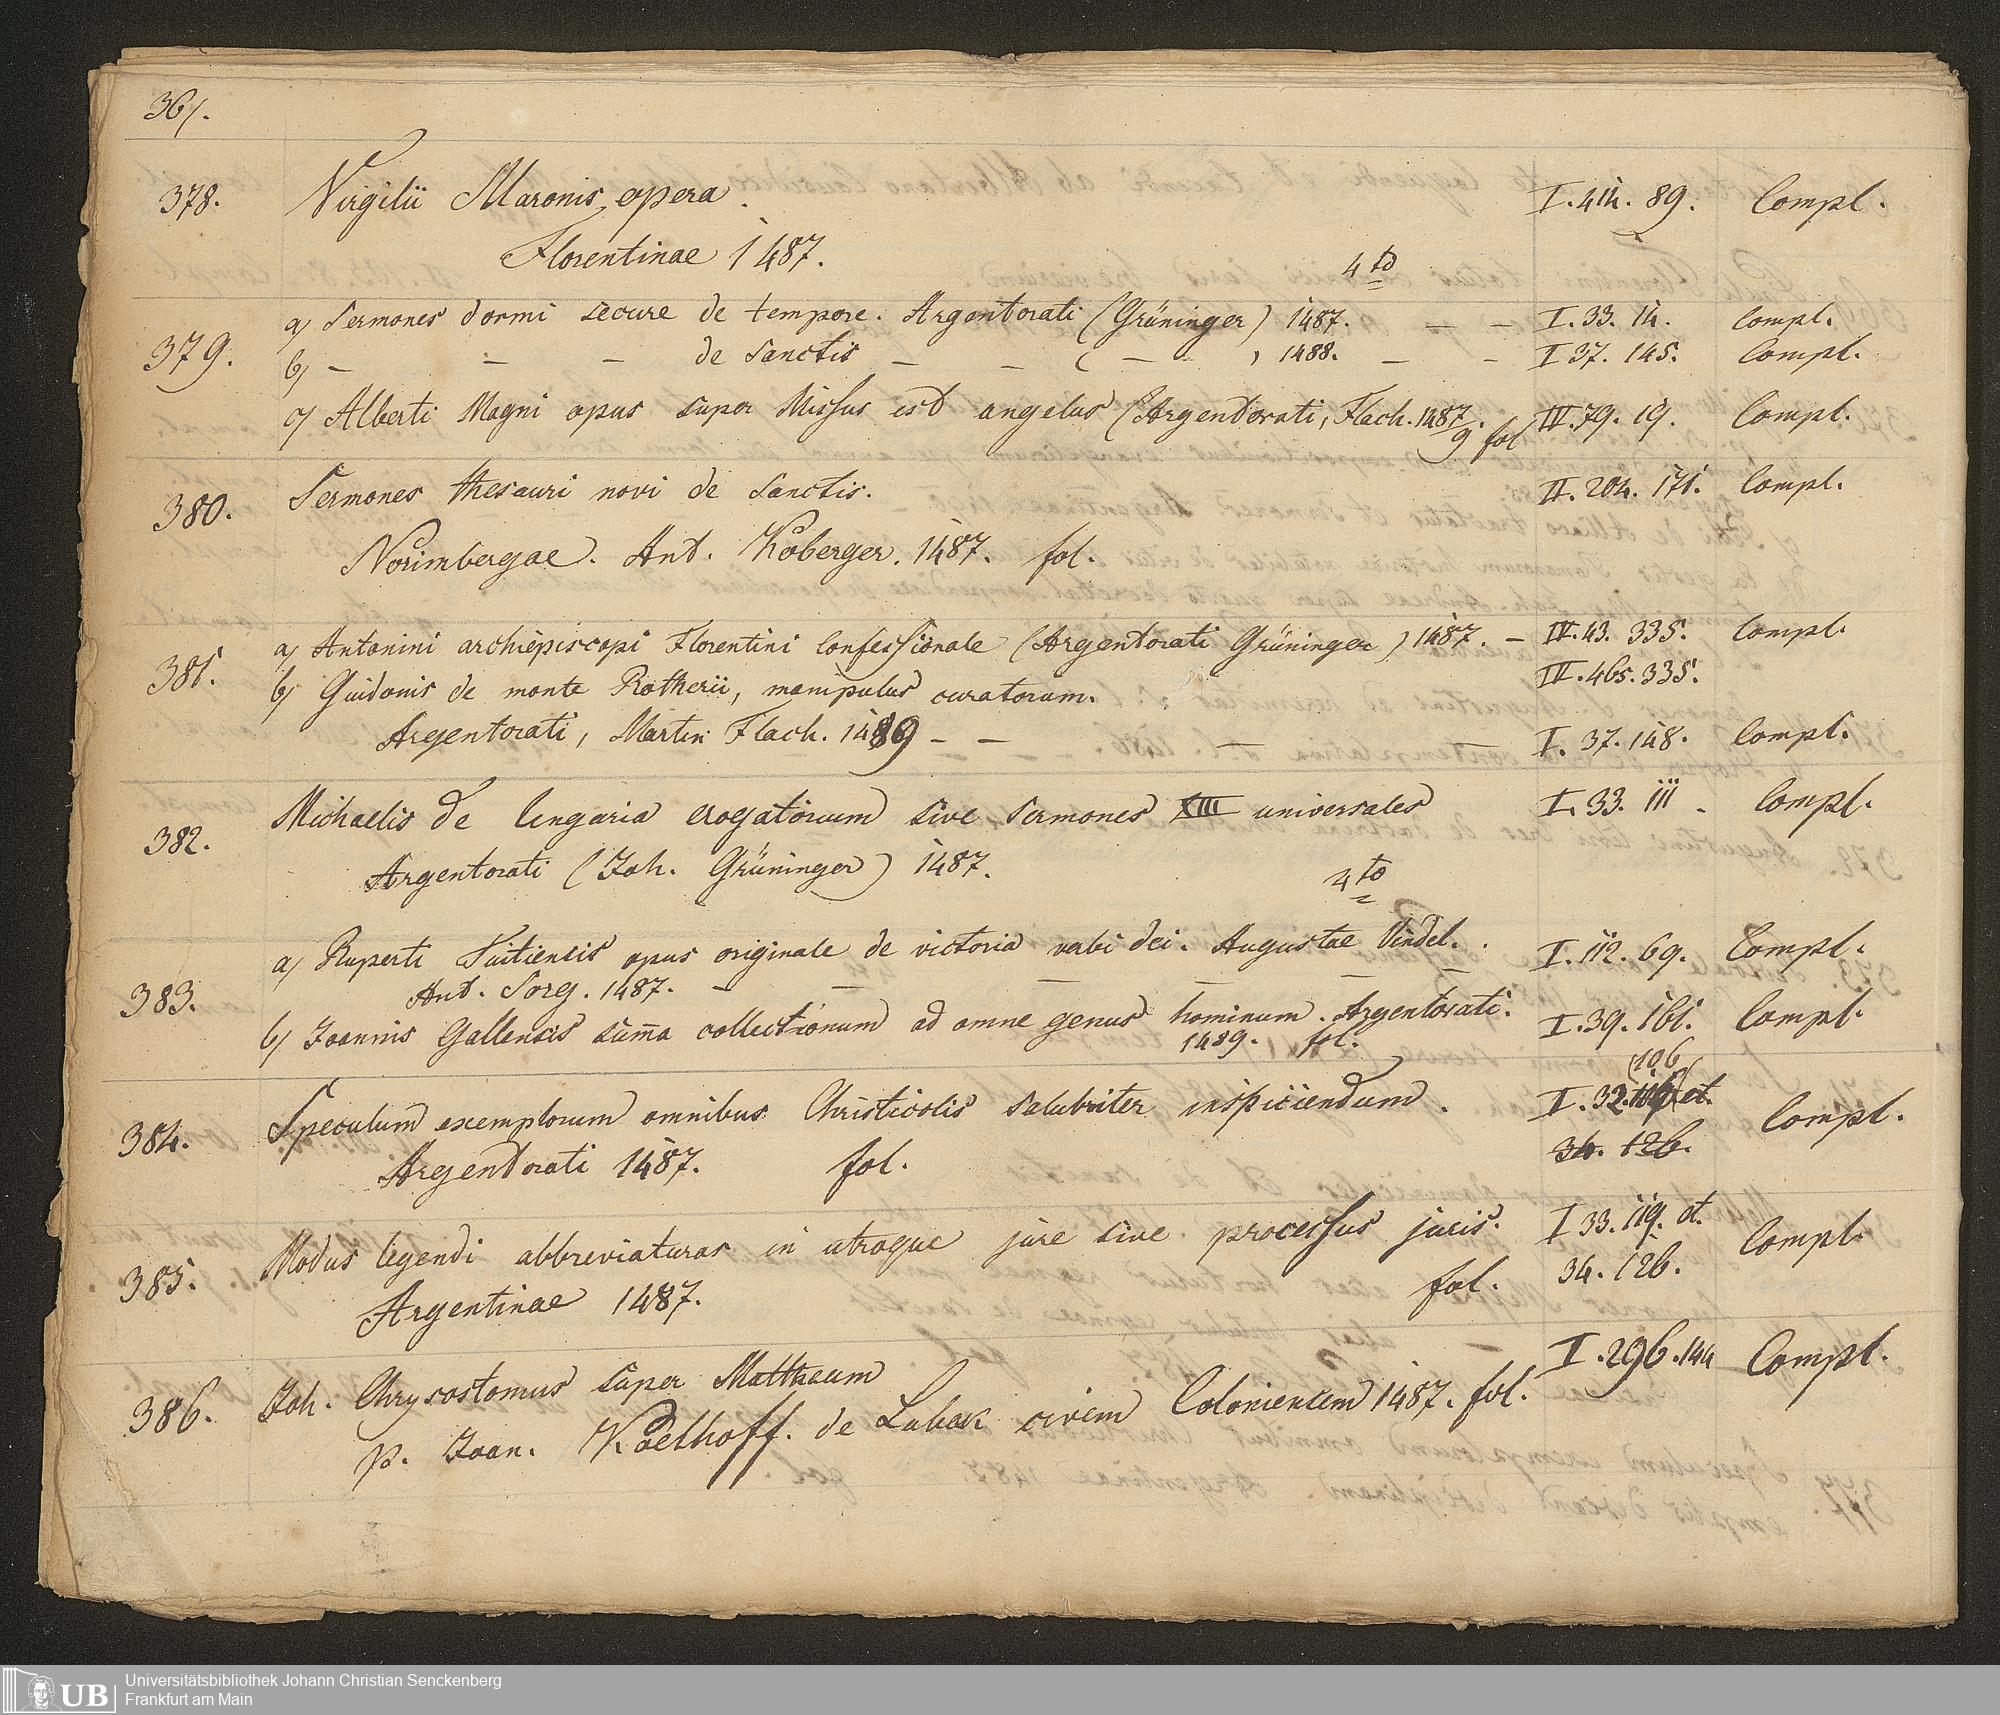 36/.
378. Virgilii Maronis opera. I. 414. 89. Compl.
Florentinae 1487. 4to
379. a) Sermones dormi secure de tempore. Argentorati (Grüninger) 1487. — — I. 33. 14. Compl.
b) — — — de Sanctis — — ( — ) 1488. — — I 37. 145. Compl.
c) Alberti Magni opus super Missus est angelus (Argentorati, Flach. 1487/9. fol IV. 79. 19. Compl.
380. Sermones thesauri novi de Sanctis. II. 204. 171. Compl.
Norimbergae. Ant. Koberger. 1487. fol.
381. a) Antonini archiepiscopi Florentini Confessionale (Argentorati Grüninger) 1487. — IV. 43. 335. Compl.
b) Guidonis de monte Rotherii, manipulus curatorum. IV. 465. 335.
Argentorati, Martin Flach. 1489 — — — — I. 37. 148. Compl.
382. Michaelis de Ungaria evagatorium sive Sermones XIII universales I. 33. 111. Compl.
Argentorati (Joh. Grüninger) 1487. 4to
383. a) Ruperti Tuitiensis opus originale de victoria verbi dei. Augustae Vindel. I. 112. 69. Compl.
Ant. Sorg. 1487. — — — — — —
b) Joannis Gallensis suma collectionum ad omne genus hominum. Argentorati. I. 39. 161. Compl.
1489. fol.
(106
384. Speculum exemplorum omnibus Christicolis salubriter inspiciendum. I. 32. et. Compl.
Argentorati 1487. fol. 34. 126.
385. Modus legendi abbreviaturas in utroque jure sive processus juris. I 33. 119. et. Compl.
Argentinae 1487. fol. 34. 126.
386. Joh. Chrysostomus super Mattheum I. 296. 144 Compl.
p. Joan. Koelhoff. de Lubek civem Coloniensem 1487. fol.
UB
Universitätsbibliothek Johann Christian Senckenberg
Frankfurt am Main